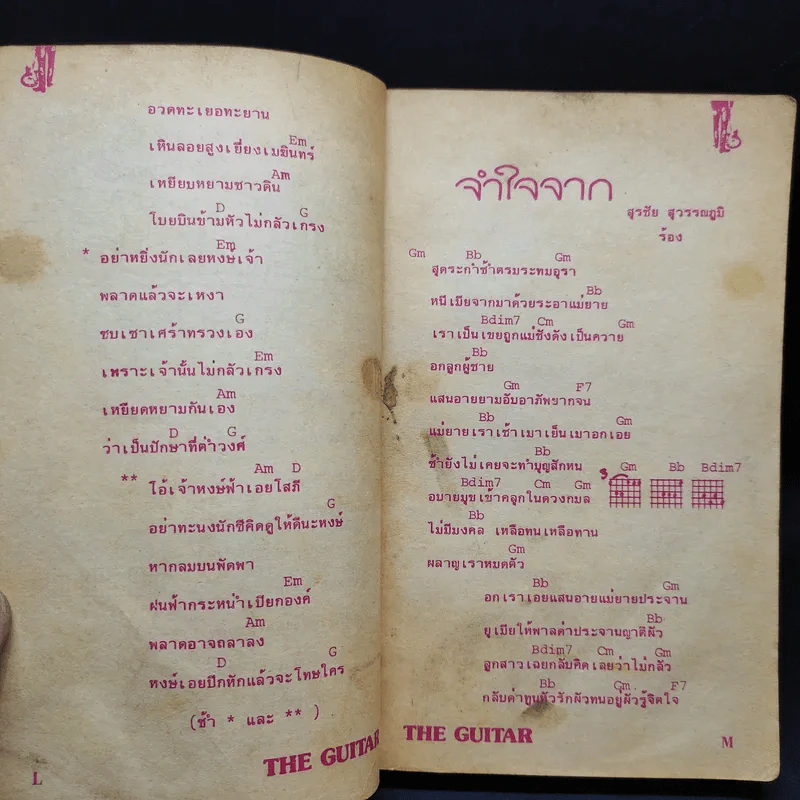 อวดทะเยอทะยาน
Em
เหินลอยสูงเยี่ยงเมฆินทร์
Am
เหยียบหยามชาวดิน
D G
โบยบินข้ามหัวไม่กลัวเกรง
Em
* อย่าหยิ่งนักเลยหงษ์เจ้า
พลาดแล้วจะเหงา
G
ซบเซาเศร้าทรวงเอง
Em
เพราะเจ้านั้นไม่กลัวเกรง
Am
เหยียดหยามกันเอง
D G
ว่าเป็นปักษาที่ต่ำวงศ์
Am D
** โอ้เจ้าหงษ์ฟ้าเอยโสภี
G
อย่าทะนงนักซีคิดดูให้ดีนะหงษ์
หากลมบนพัดพา
Em
ฝนฟ้ากระหน่ำเปียกองค์
Am
พลาดอาจถลาลง
D G
หงษ์เอยปีกหักแล้วจะโทษใคร
(ซ้ำ * และ **)
THE GUITAR
L
จำใจจาก
สุรชัย สุวรรณภูมิ
ร้อง
Gm Bb Gm
สุดระกำช้ำตรมระทมอุรา
Bb
หนีเมียจากมาด้วยระอาแม่ยาย
Bdim7 Cm Gm
เราเป็นเขยถูกแม่ชังดังเป็นควาย
Bb
อกลูกผู้ชาย
Gm F7
แสนอายยามอับอาภัพยากจน
Bb Gm
แม่ยายเราเช้าเมาเย็นเมาอกเอย
Bb
ซ้ำยังไม่เคยจะทำบุญสักหน
Bdim7 Cm Gm
อบายมุขเข้าคลุกในดวงกมล
3 Gm Bb Bdim7
Bb
ไม่มีมงคล เหลือทนเหลือทาน
Gm
ผลาญเราหมดตัว
Bb Gm
อกเราเอยแสนอายแม่ยายประจาน
Bb
ยุเมียให้พาลด่าประจานญาติผัว
Bdim7 Cm Gm
ลูกสาวเฉยกลับคิดเลยว่าไม่กลัว
Bb Gm F7
กลับด่าทูนหัวรักผัวทนอยู่ผัวรู้จิตใจ
THE GUITAR
M